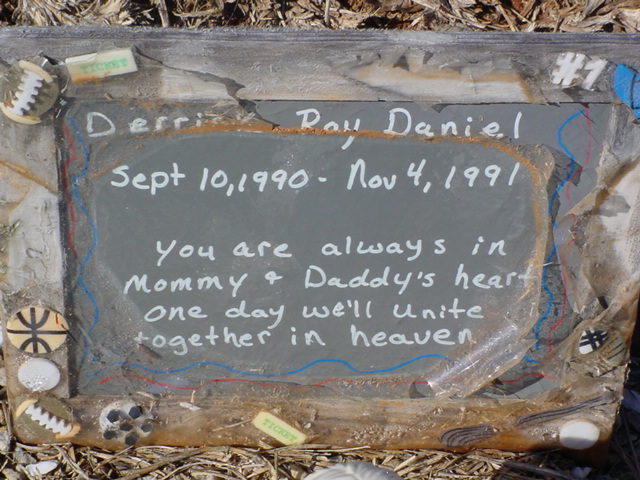 TICKET
#1
Ray Daniel
Sept 10, 1990 - Nov 4, 1991
you are always in
Mommy & Daddy's heart
one day we'll unite
together in heaven
TICKET